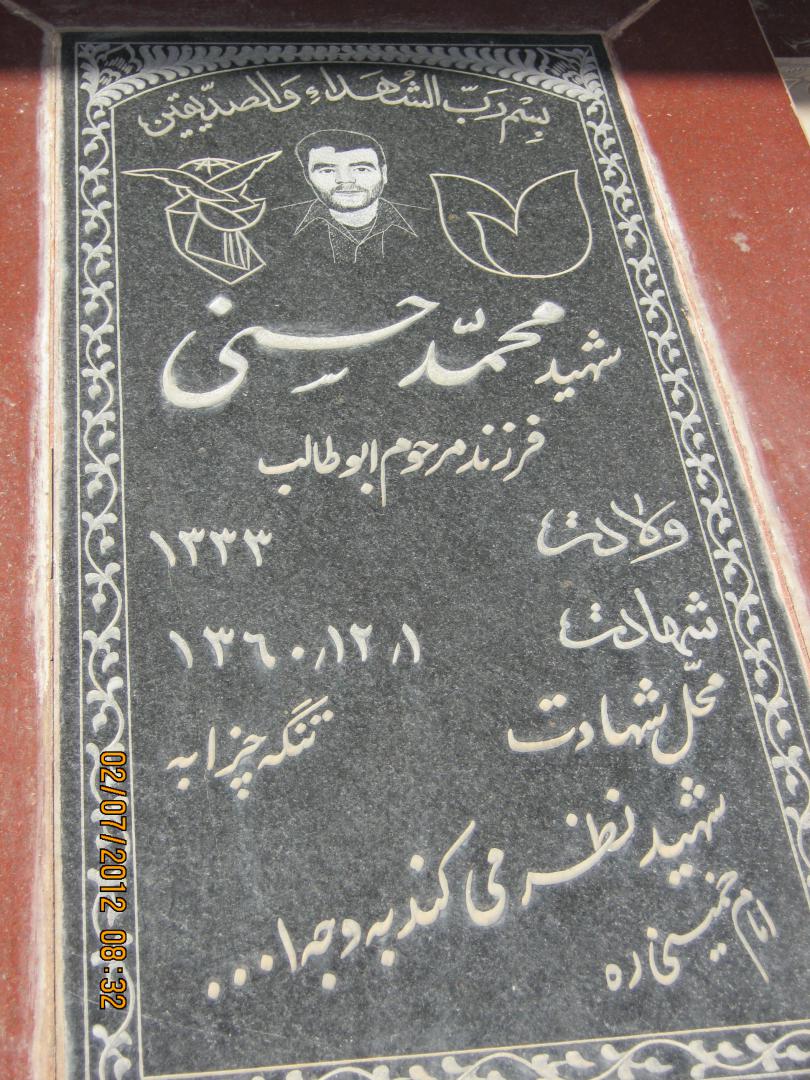 بِسْمِ رَبِّ الشُهَداءِ وَالصدّیقین
شهید محمّد حسینی
فرزند مرحوم ابوطالب
ولادت ۱۳۳۳
شهادت ۱۳٦۰٫۱۲٫۱
محلّ شهادت تنگه چزابه
شهید نظر می کند به وجه ا...
امام خمینی ره
02/07/2012 08:32